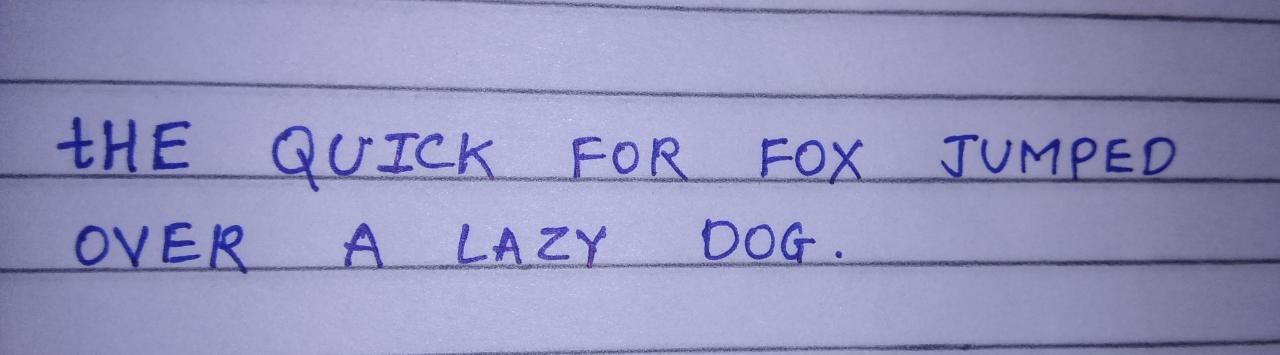 tHE QUICK FOR FOX JUMPED
OVER A LAZY DOG.